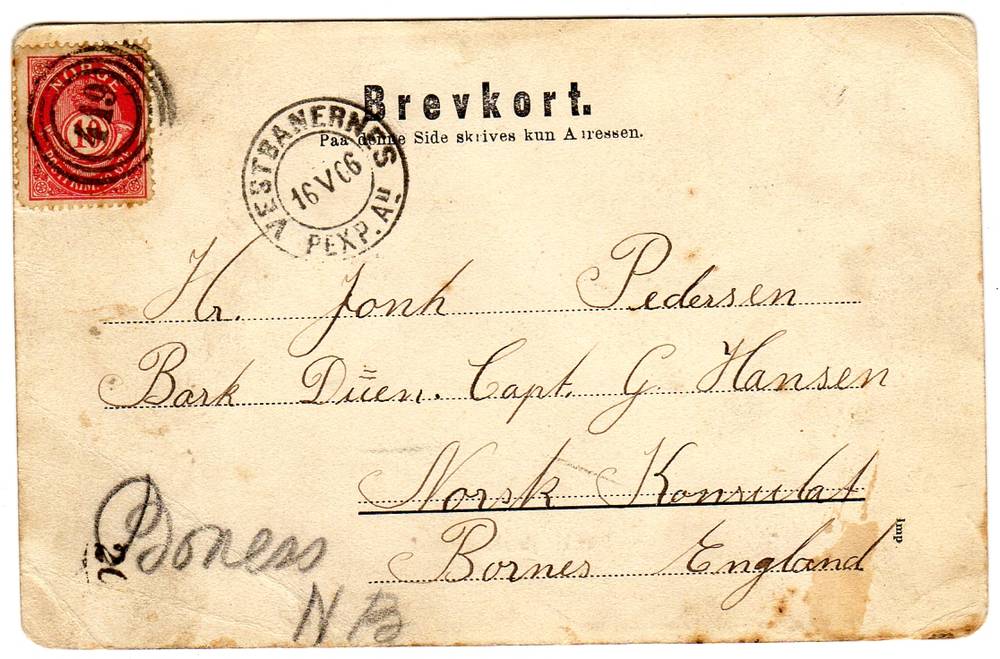 NORGE
10
Brevkort.
Paa denne Side skrives kun Adressen.
VESTBANERNES
16 V 06
PEXP. Au
Hr. Jonh Pedersen
Bark Düen. Capt. G Hansen
Norsk Konsulat
Bornes England
Boness
NB
Imp.